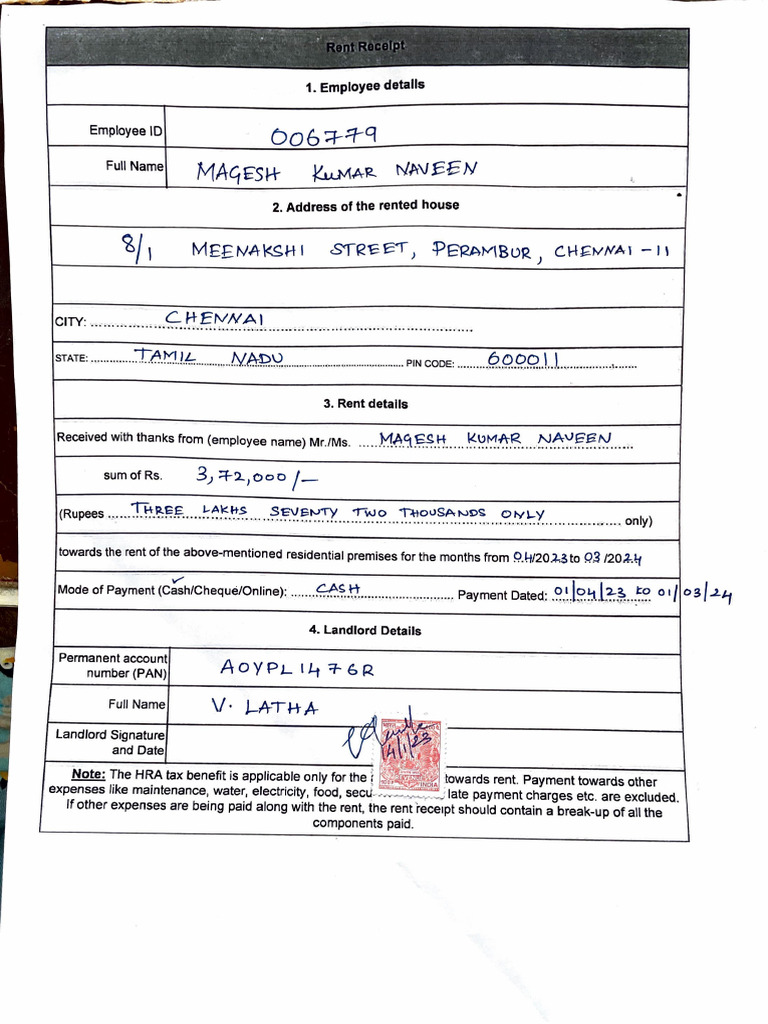 Rent Receipt
1. Employee details
Employee ID 006779
Full Name MAGESH KUMAR NAVEEN
2. Address of the rented house
8/1 MEENAKSHI STREET, PERAMBUR, CHENNAI-11
CITY: CHENNAI
STATE: TAMIL NADU PIN CODE: 600011
3. Rent details
Received with thanks from (employee name) Mr./Ms. MAGESH KUMAR NAVEEN
sum of Rs. 3,72,000/-
(Rupees THREE LAKHS SEVENTY TWO THOUSANDS ONLY only)
towards the rent of the above-mentioned residential premises for the months from 04/2023 to 03/2024
Mode of Payment (Cash/Cheque/Online): CASH Payment Dated: 01/04/23 to 01/03/24
4. Landlord Details
Permanent account
number (PAN) AOYPL1476R
Full Name V. LATHA
Landlord Signature
and Date 4/1/23
REVENUE
INDIA
Note: The HRA tax benefit is applicable only for the towards rent. Payment towards other
expenses like maintenance, water, electricity, food, secu late payment charges etc. are excluded.
If other expenses are being paid along with the rent, the rent receipt should contain a break-up of all the
components paid.